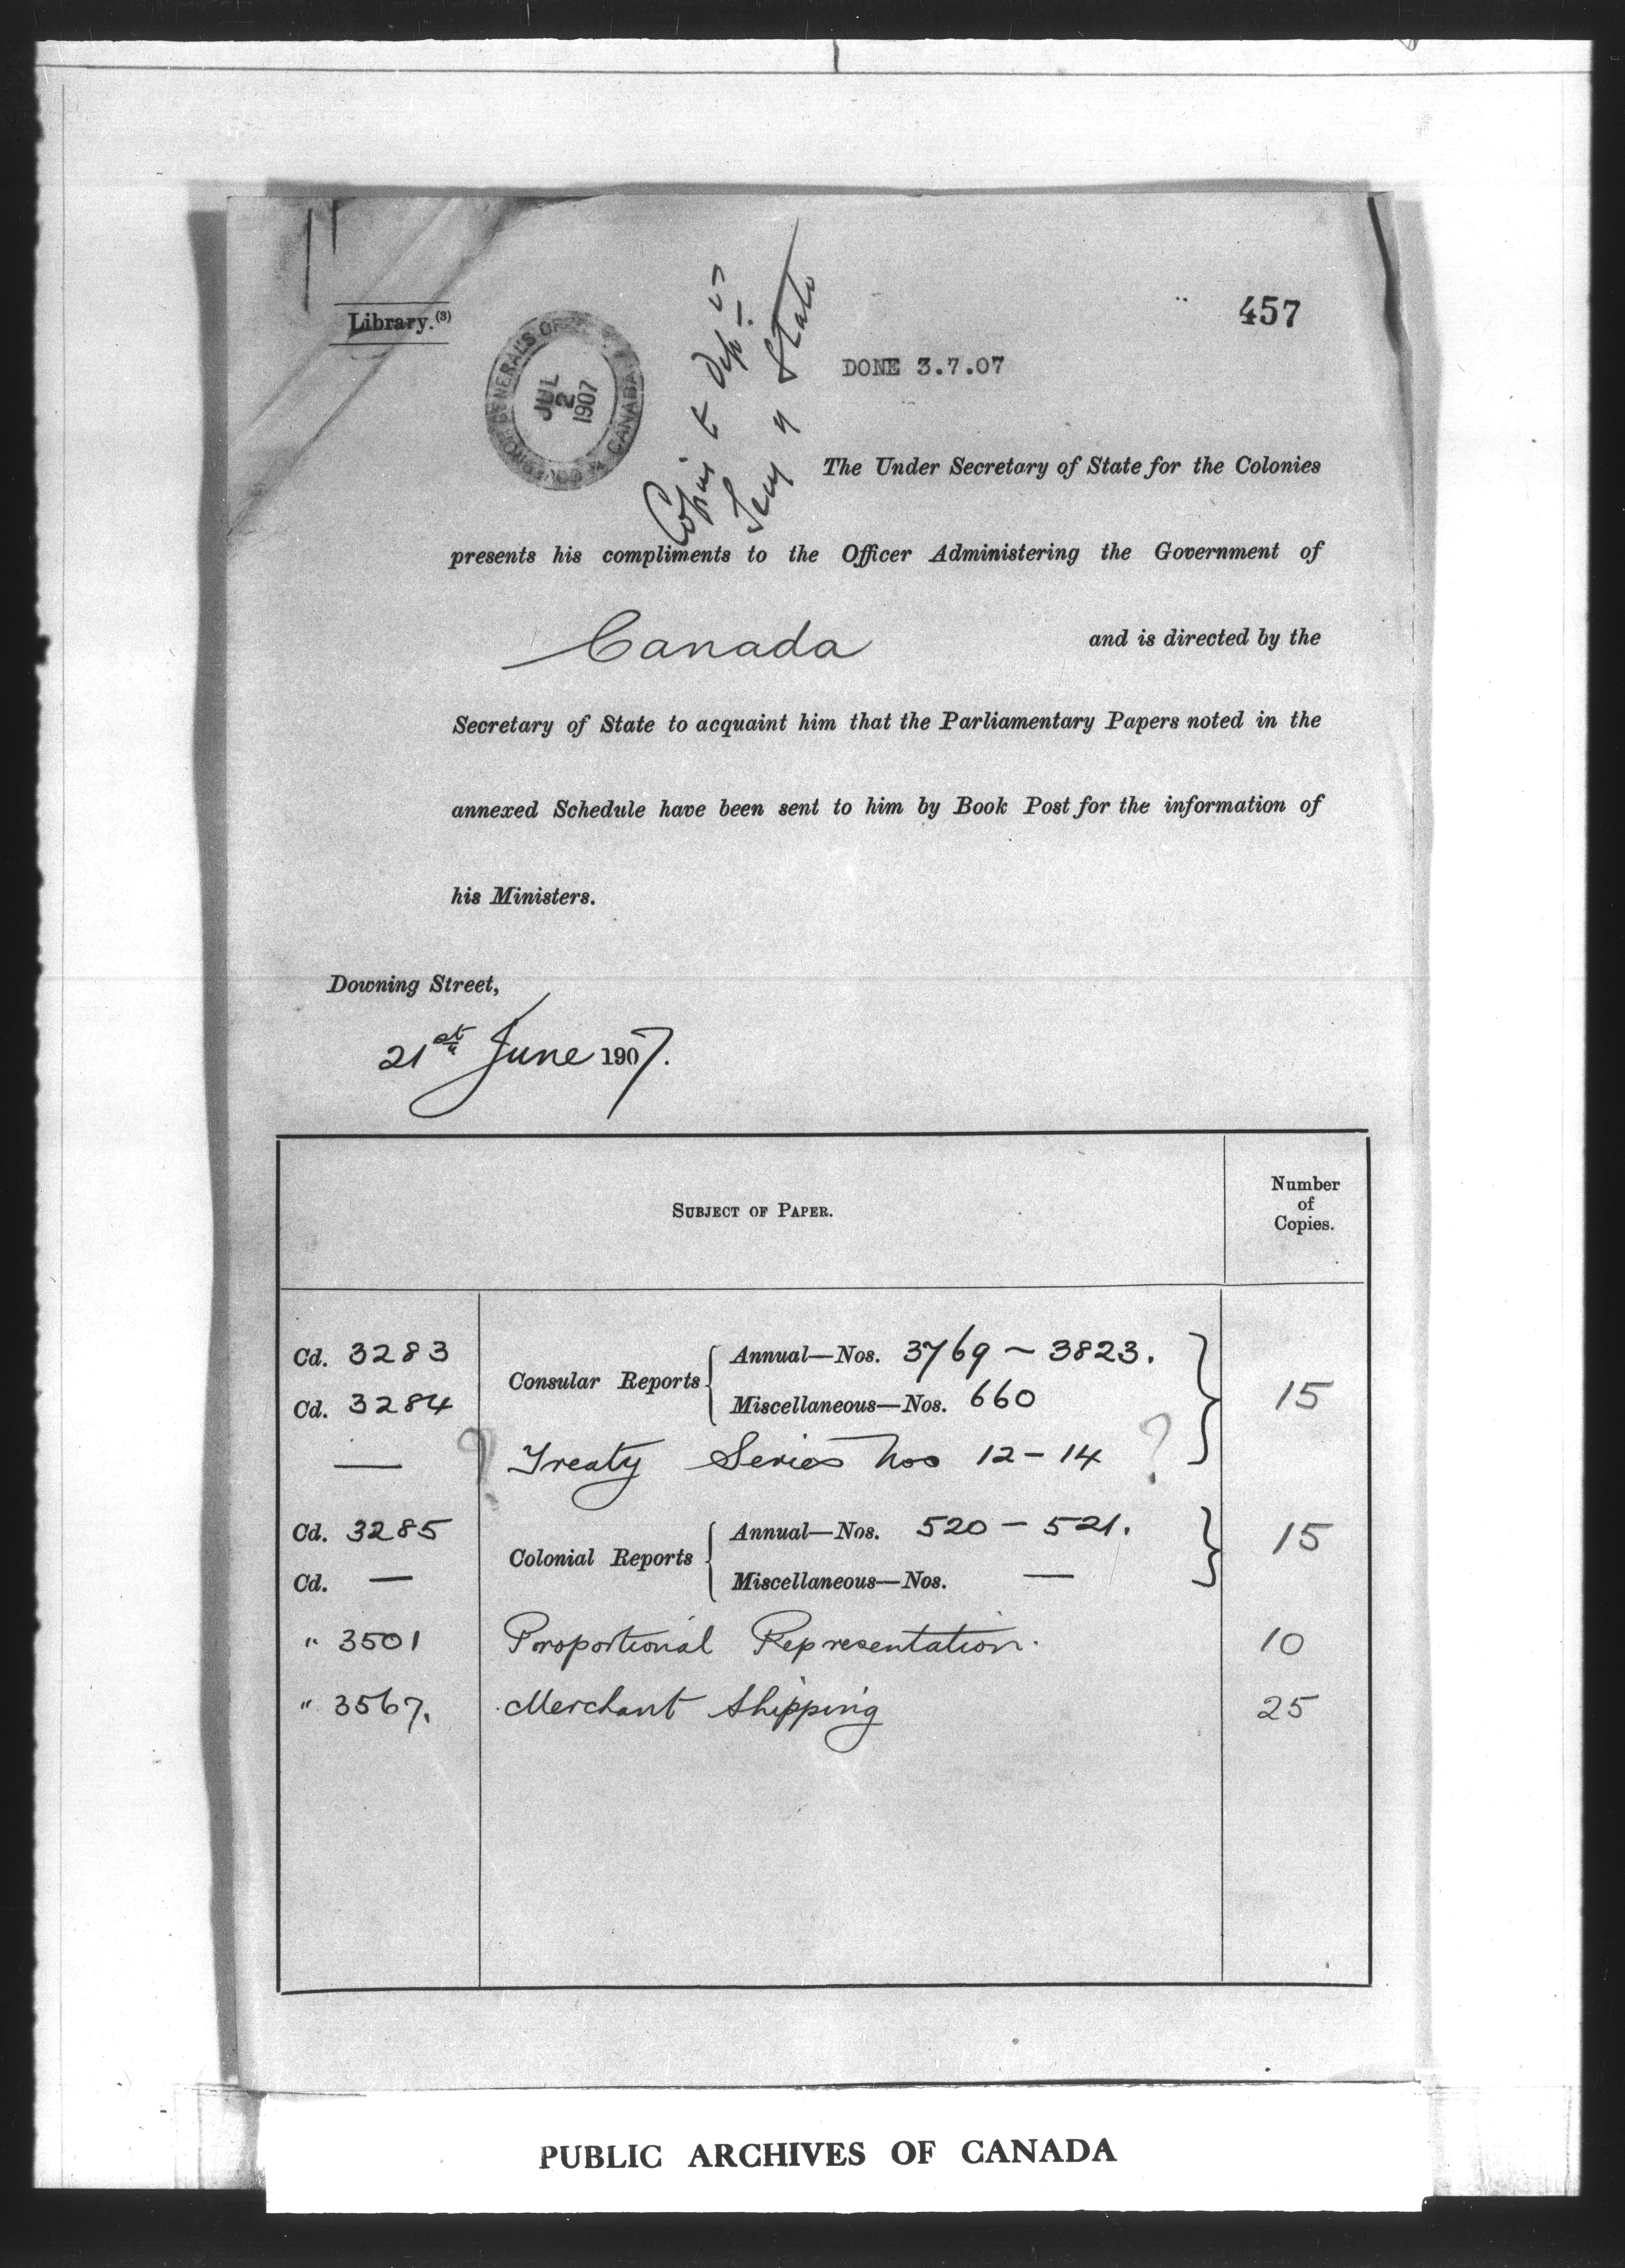 Library.(3)
GOVERNOR GENERAL'S OFFICE CANADA
JUL
2
1907
Copies to Dep. of
Secy of State
457
DONE 3.7.07
The Under Secretary of State for the Colonies
presents his compliments to the Officer Administering the Government of
Canada and is directed by the
Secretary of State to acquaint him that the Parliamentary Papers noted in the
annexed Schedule have been sent to him by Book Post for the information of
his Ministers.
Downing Street,
21st June 1907.
SUBJECT OF PAPER.
Number
of
Copies.
Cd. 3283 Consular Reports { Annual—Nos. 3769 – 3823. } 15
Cd. 3284 Miscellaneous—Nos. 660
— ? Treaty Series Nos 12 – 14 ?
Cd. 3285 Colonial Reports { Annual—Nos. 520 – 521. } 15
Cd. — Miscellaneous—Nos. —
" 3501 Proportional Representation. 10
" 3567. Merchant Shipping 25
PUBLIC ARCHIVES OF CANADA